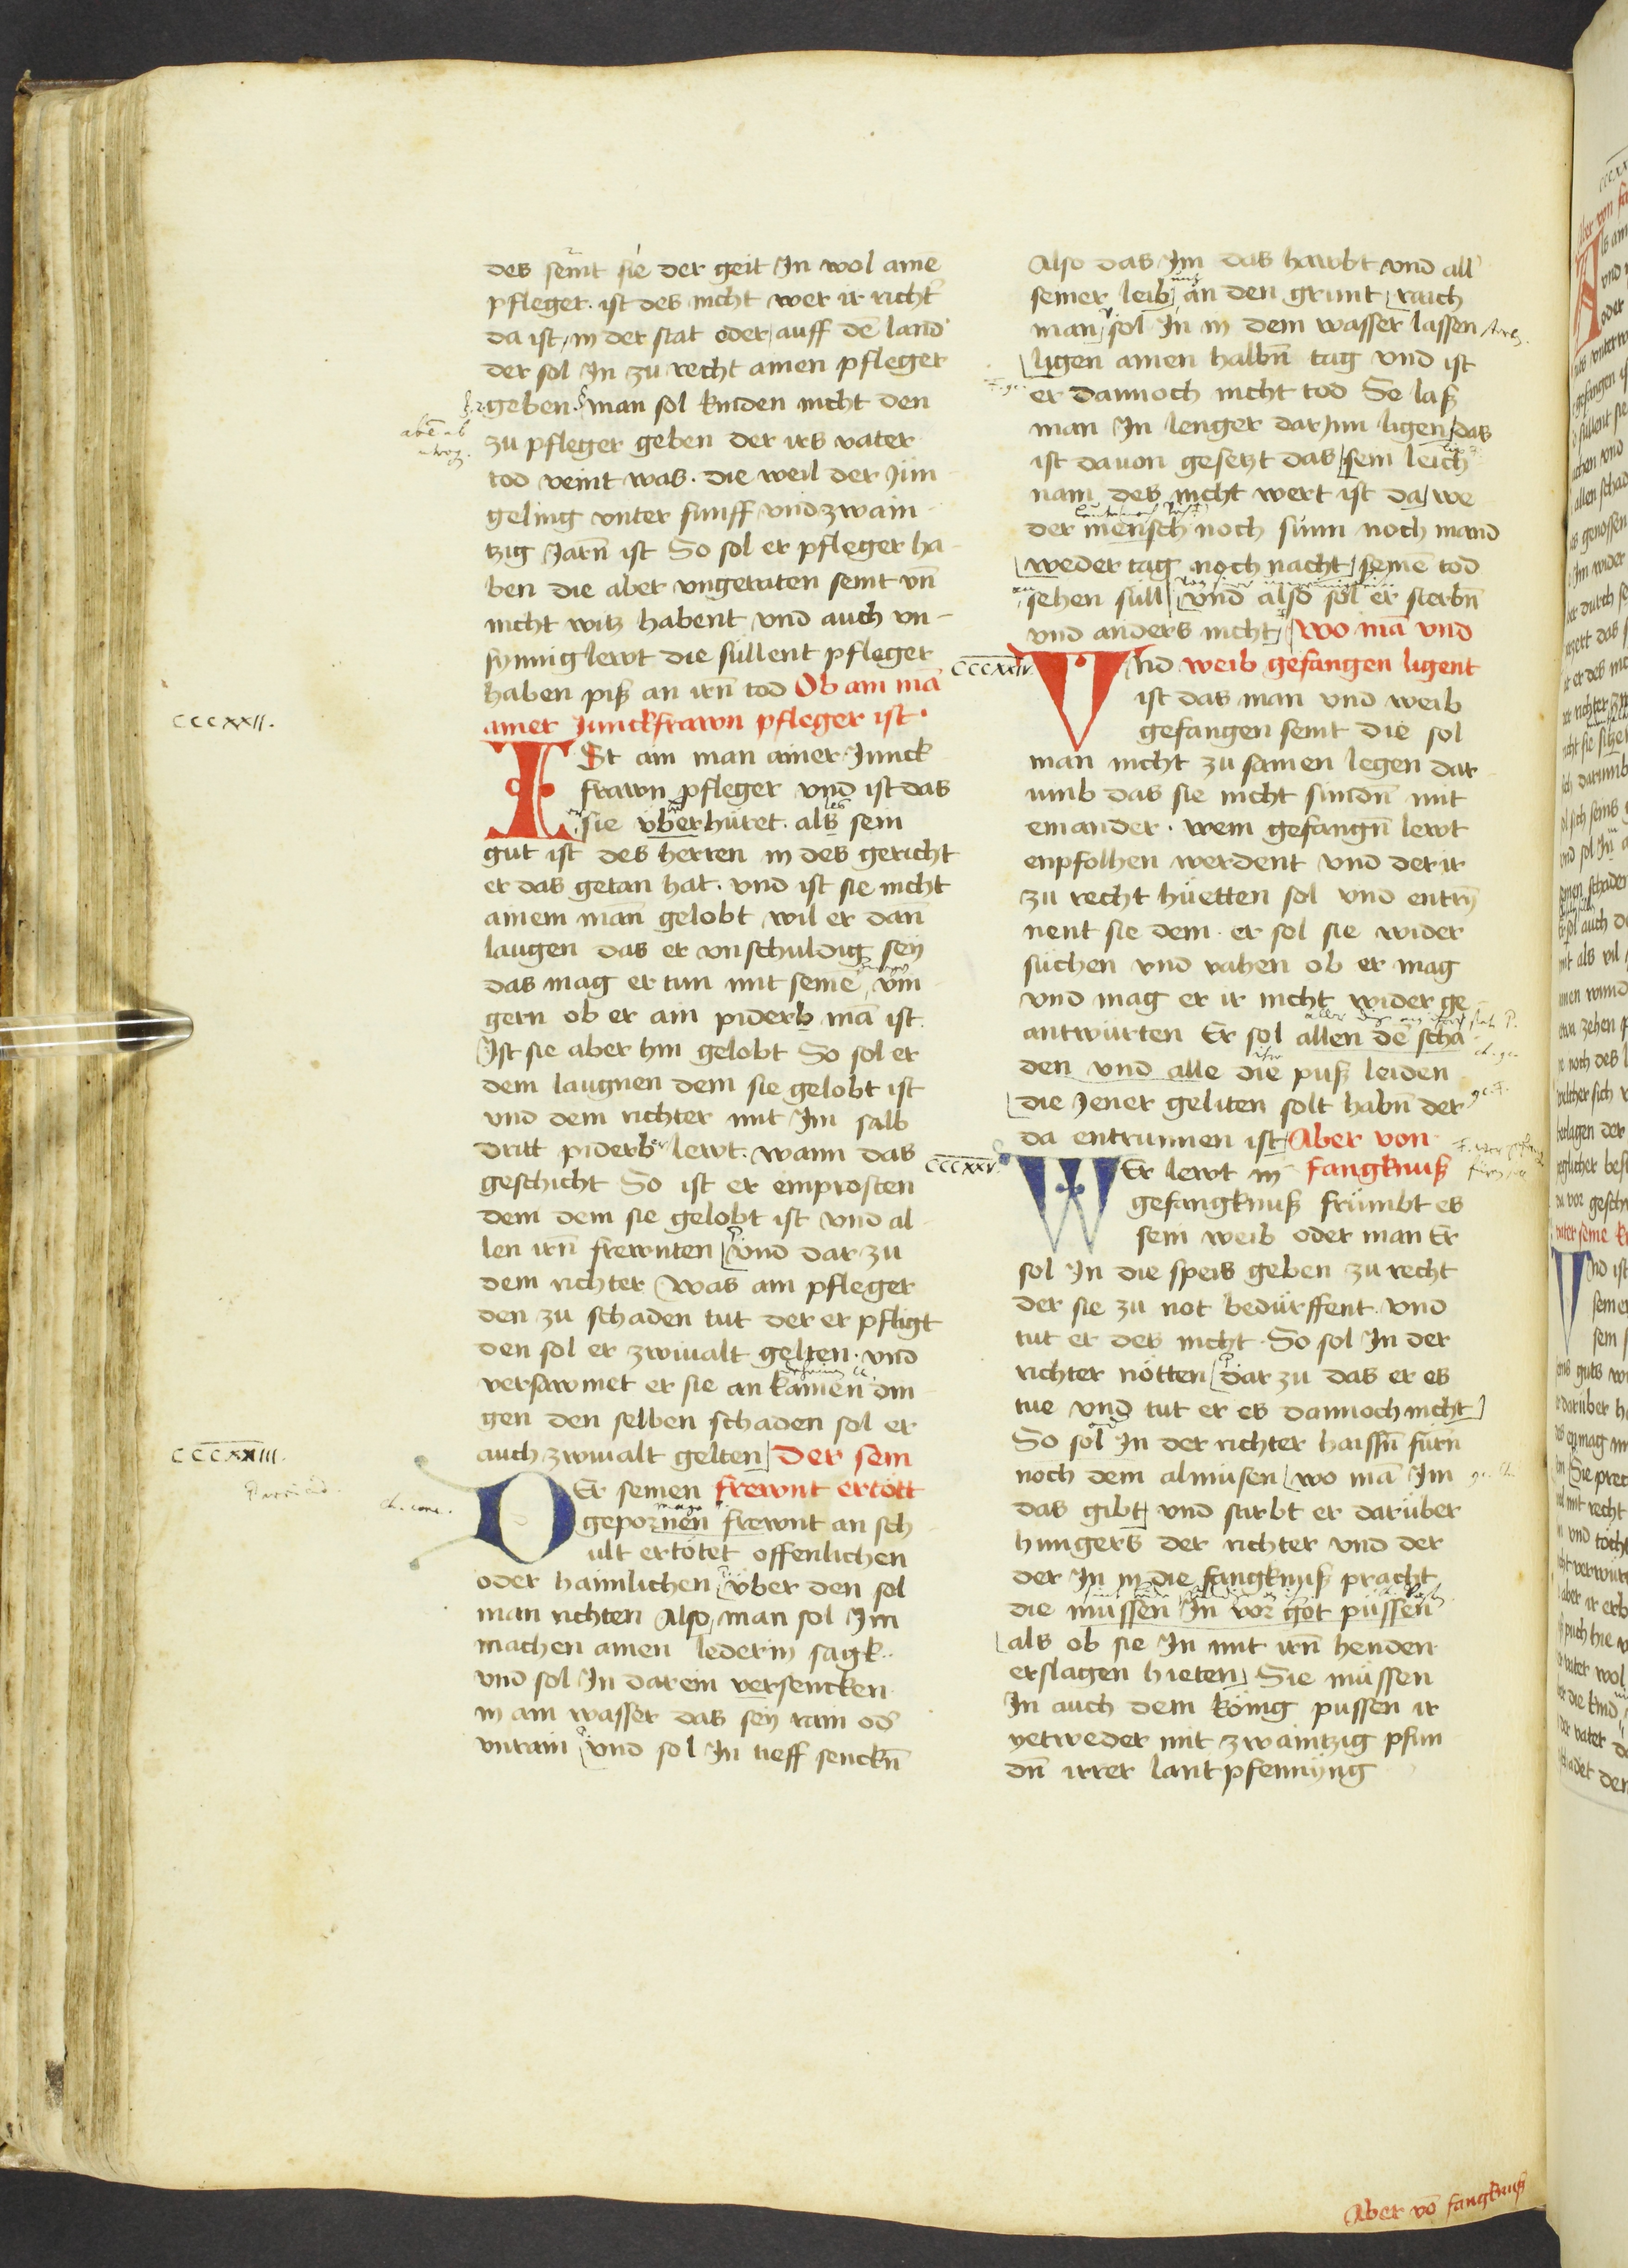 des seint sie der geit In wol aine
pfleger. ist des nicht wer ir richt
da ist in der stat oder auff de land
der sol In zu recht ainen pfleger
geben. man sol kinden nicht den
zu pfleger geben der irs vater
tod veint was. die weil der Jun
geling vnter funff vnd zwain
tzig Jarn ist So sol er pfleger ha
ben die aber vngeraten seint vn
nicht witz habent vnd auch vn-
synnig lewt die sullent pfleger
haben piß an irn tod Ob ain ma
CCCXXII.
ainer Junckfrawn pfleger ist.
ISt ain man ainer Junck
frawn pfleger vnd ist das
sie vberhuret. als sein
gut ist des herren in des gericht
er das getan hat. vnd ist sie nicht
ainem man gelobt wil er dan
laugen das er vnschuldig sey
das mag er tun mit seine vin
gern ob er ain piderb ma ist.
Ist sie aber hin gelobt So sol er
dem laugnen dem sie gelobt ist
vnd dem richter mit Im salb
dritt piderber lewt. wann das
geschicht So ist er emprosten
dem dem sie gelobt ist vnd al
len irn frewnten vnd dar zu
dem richter Was ain pfleger
den zu schaden tut der er pfligt
den sol er zwiualt gelten. vnd
versawmet er sie an kainen din
gen den selben schaden sol er
CCCXXIII.
auch zwiualt gelten Der sein
DEr seinen frewnt ertött
gepornen frewnt an sch
ult ertötet offenlichen
oder haimlichen vber den sol
man richten Also man sol Im
machen ainen lederin sagk.
vnd sol In darein versencken
in ain wasser das sey rain od
vnrain vnd sol In tieff senckn
Also das Im das hawbt vnd all
seiner leib an den grunt raich
man sol In in dem wasser lassen
ligen ainen halbn tag vnd ist
er dannoch nicht tod So laß
man In lenger darInn ligen das
ist dauon gesetzt das sein leich
nam des nicht wert ist da we
der mensch noch sunn noch mand
weder tag noch nacht seine tod
sehen sull vnd also sol er sterbn
vnd anders nicht Wo ma vnd
CCCXXIV.
VNd weib gefangen ligent
ist das man vnd weib
gefangen seint die sol
man nicht zu samen legen dar
umb das sie nicht sundn mit
einander. wem gefangn lewt
enpfolhen werdent vnd der ir
zu recht hüetten sol vnd entry
nent sie dem. er sol sie wider
suchen vnd vahen ob er mag
vnd mag er ir nicht wider ge
antwurten Er sol allen de scha
den vnd alle die puß leiden
die Jener geliten solt habn der
da entrunnen ist Aber von
CCCXXV.
WEr lewt in fangknuß
gefangknuß frümbt es
sein weib oder man Er
sol In die speis geben zu recht
der sie zu not bedürffent. vnd
tut er des nicht. So sol In der
richter nötten dar zu das er es
tue vnd tut er es dannoch nicht
So sol In der richter haissn furn
noch dem almusen wo ma Im
das gibt vnd stirbt er darüber
hungers der richter vnd der
der In in die fangknuß pracht
die mussen In vor got püssen
als ob sie In mit irn henden
erslagen hieten Sie müssen
In auch dem könig pussen ir
yetweder mit zwaintzig pfun
dn irrer lantpfennyng
Aber vo fangknuß